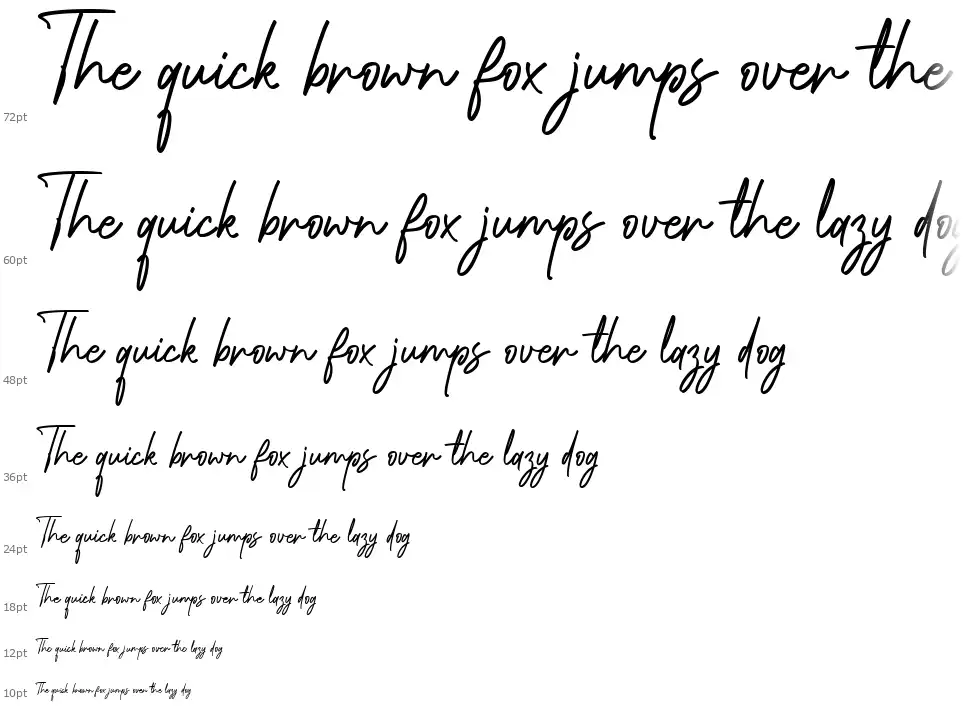 The quick brown fox jumps over the
72pt
The quick brown fox jumps over the lazy dog
60pt
The quick brown fox jumps over the lazy dog
48pt
The quick brown fox jumps over the lazy dog
36pt
The quick brown fox jumps over the lazy dog
24pt
The quick brown fox jumps over the lazy dog
18pt
The quick brown fox jumps over the lazy dog
12pt
The quick brown fox jumps over the lazy dog
10pt